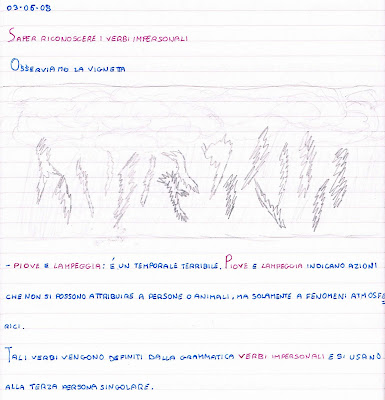 03-05-08
SAPER RICONOSCERE I VERBI IMPERSONALI
OSSERVIAMO LA VIGNETA
- PIOVE E LAMPEGGIA: É UN TEMPORALE TERRIBILE. PIOVE E LAMPEGGIA INDICANO AZIONI
CHE NON SI POSSONO ATTRIBUIRE A PERSONE O ANIMALI, MA SOLAMENTE A FENOMENI ATMOSFE
RICI.
TALI VERBI VENGONO DEFINITI DALLA GRAMMATICA VERBI IMPERSONALI E SI USANO
ALLA TERZA PERSONA SINGOLARE.